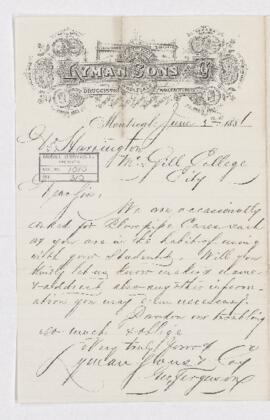 LYMAN SONS & Co
DRUGGISTS
Montreal, June 1881
Dr Harrington
McGill College
City
Dear Sir,
We are occasionally
asked for Blowpipe Cases such
as you are in the habit of using
with your students. Will you
kindly let us know maker's name
& address also any other inform-
ation you may deem necessary.
Pardon our troubling
so much & oblige
Very truly yours
Lyman Sons & Co
Ferguson